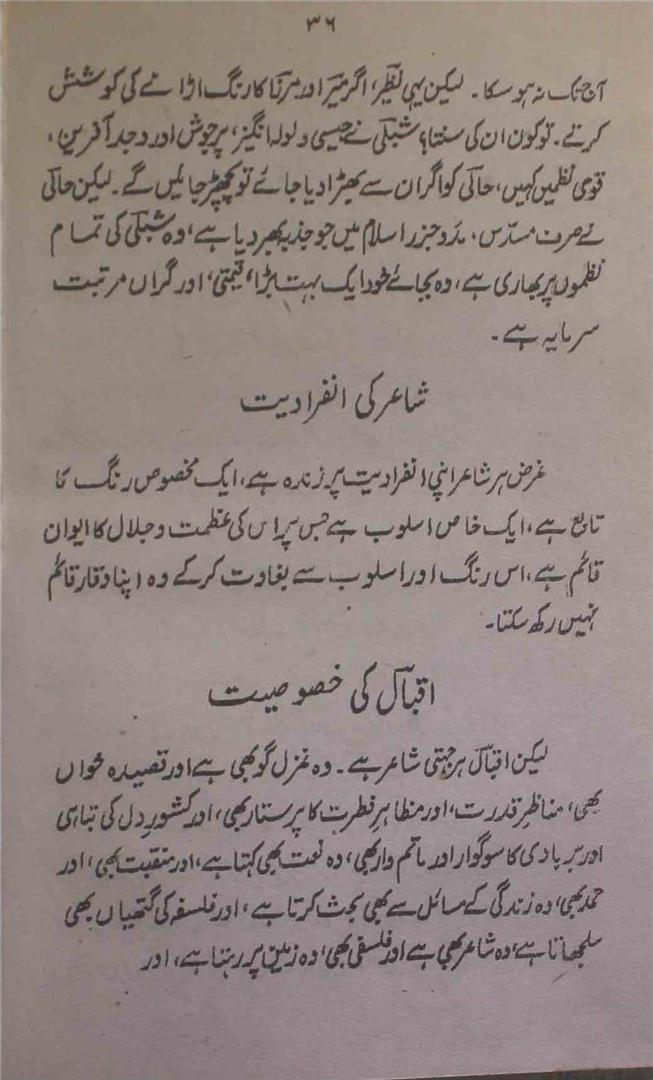 ۳۶
آج تک نہ ہو سکا۔ لیکن یہی نظیر، اگر میر اور مرزا کا رنگ اڑانے کی کوشش
کرتے۔ تو کون ان کی سنتا؟ شبلی نے جیسی ولولہ انگیز، پرجوش اور وجد آفرین،
قومی نظمیں کہیں، حالی کو اگر ان سے بھڑا دیا جائے تو پچھڑ جائیں گے۔ لیکن حالی
نے صرف مسدس، مدوجزر اسلام میں جو جذبہ بھر دیا ہے، وہ شبلی کی تمام
نظموں پر بھاری ہے، وہ بجائے خود ایک بہت بڑا، قیمتی، اور گراں مرتبت
سرمایہ ہے۔
شاعر کی انفرادیت
غرض ہر شاعر اپنی انفرادیت پر زندہ ہے، ایک مخصوص رنگ کا
تابع ہے، ایک خاص اسلوب ہے جس پر اس کی عظمت و جلال کا ایوان
قائم ہے، اس رنگ اور اسلوب سے بغاوت کرکے وہ اپنا وقار قائم
نہیں رکھ سکتا۔
اقبال کی خصوصیت
لیکن اقبال ہر جہتی شاعر ہے۔ وہ غزل گو بھی ہے اور قصیدہ خواں
بھی، مناظر قدرت، اور مظاہر فطرت کا پرستار بھی، اور کشور دل کی تباہی
اور بربادی کا سوگوار اور ماتم دار بھی، وہ نعت بھی کہتا ہے، اور منقبت بھی، اور
حمد بھی، وہ زندگی کے مسائل سے بھی بحث کرتا ہے، اور فلسفہ کی گتھیاں بھی
سلجھاتا ہے، وہ شاعر بھی ہے اور فلسفی بھی، وہ زمین پر رہتا ہے، اور